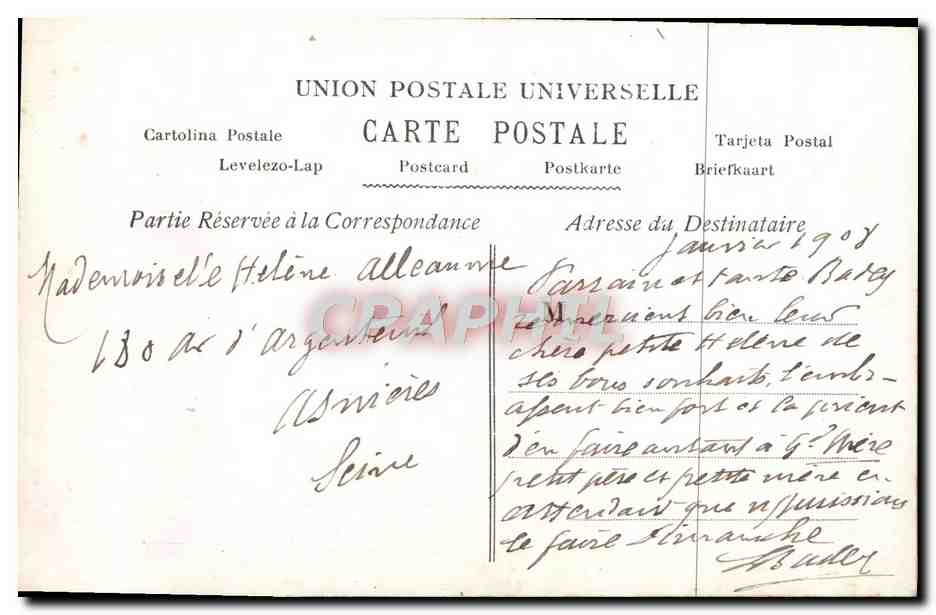 UNION POSTALE UNIVERSELLE
CARTE POSTALE
Cartolina Postale
Tarjeta Postal
Levelezo-Lap Postcard Postkarte Briefkaart
Partie Réservée à la Correspondance
Adresse du Destinataire
Mademoiselle Helène Alleaume
130 Av d'Argenteuil
Asnières
Seine
Janvier 1908
Parrain et tante
M
remercient bien leur
chère petite Helène de
ses bons souhaits, l'embr-
assent bien fort et la prient
d'en faire autant à Gd Mère
petit père et petite mère en
attendant que n/ puissions
le faire Dimanche
CPAPHIL